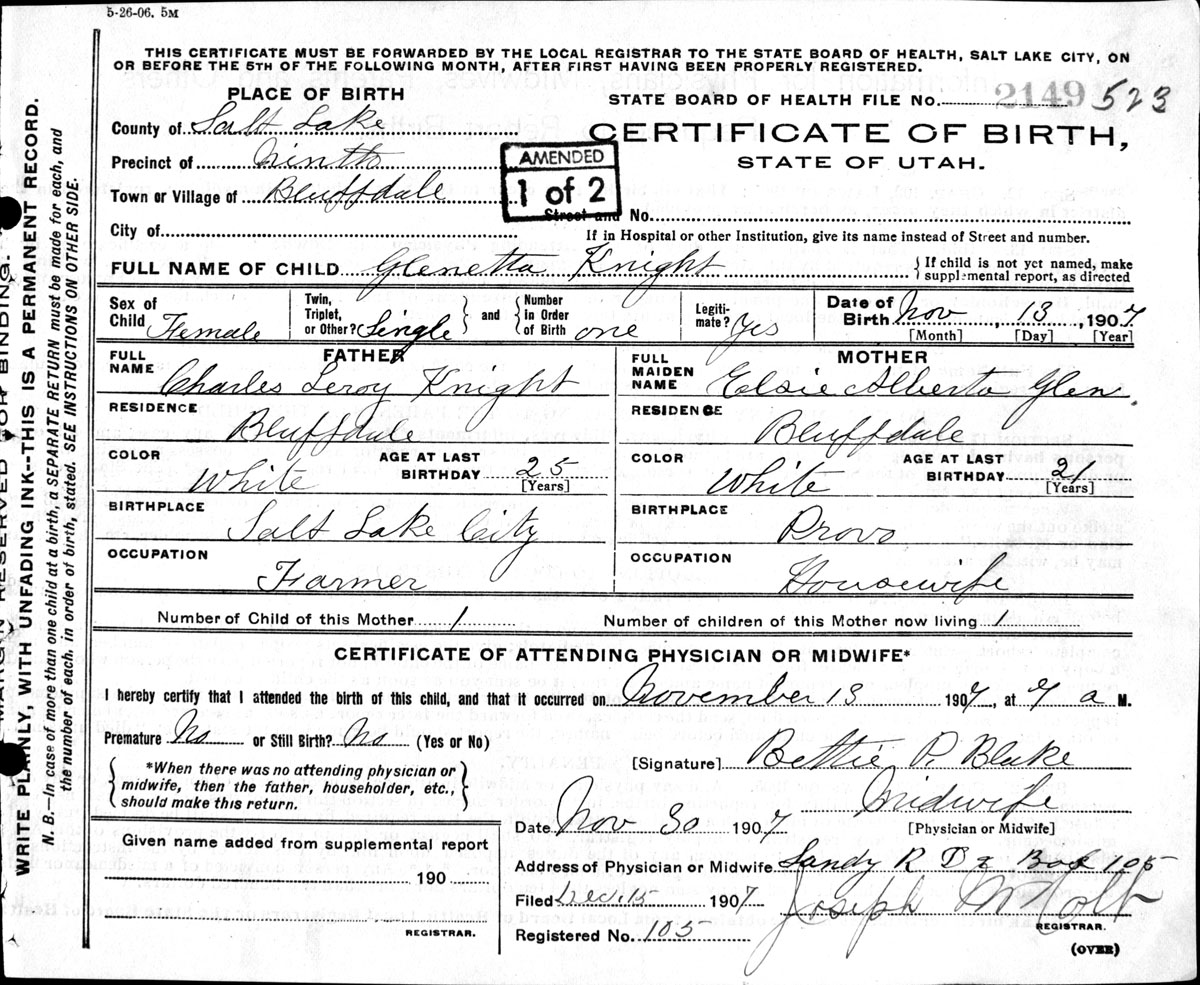 5-26-06. 5M
THIS CERTIFICATE MUST BE FORWARDED BY THE LOCAL REGISTRAR TO THE STATE BOARD OF HEALTH, SALT LAKE CITY, ON
OR BEFORE THE 5TH OF THE FOLLOWING MONTH, AFTER FIRST HAVING BEEN PROPERLY REGISTERED.
PLACE OF BIRTH
STATE BOARD OF HEALTH FILE No. 2149 523
County of Salt Lake
CERTIFICATE OF BIRTH,
STATE OF UTAH.
Precinct of Ninth
AMENDED
1 of 2
Town or Village of Bluffdale
Street and No.
City of
If in Hospital or other Institution, give its name instead of Street and number.
FULL NAME OF CHILD Glenetta Knight
{ If child is not yet named, make
supplemental report, as directed
Sex of Child Female
Twin, Triplet, or Other? Single } and { Number in Order of Birth one
Legiti-mate? Yes
Date of Birth Nov, 13, 1907
[Month] [Day] [Year]
FATHER
FULL NAME Charles Leroy Knight
RESIDENCE Bluffdale
COLOR White AGE AT LAST BIRTHDAY 25 [Years]
BIRTHPLACE Salt Lake City
OCCUPATION Farmer
MOTHER
FULL MAIDEN NAME Elsie Alberta Glen
RESIDENCE Bluffdale
COLOR White AGE AT LAST BIRTHDAY 21 [Years]
BIRTHPLACE Provo
OCCUPATION Housewife
Number of Child of this Mother 1 Number of children of this Mother now living 1
CERTIFICATE OF ATTENDING PHYSICIAN OR MIDWIFE*
I hereby certify that I attended the birth of this child, and that it occurred on November 13 1907, at 7 a M.
Premature No or Still Birth? No (Yes or No)
{ *When there was no attending physician or
midwife, then the father, householder, etc.,
should make this return. }
[Signature] Bettie P. Blake
Midwife
[Physician or Midwife]
Date Nov 30 1907
Given name added from supplemental report
190
REGISTRAR.
Address of Physician or Midwife Sandy R D 2 Box 105
Filed Dec 15 1907
Joseph M Holt
REGISTRAR.
Registered No. 105
(OVER)
MARGIN RESERVED FOR BINDING.
WRITE PLAINLY, WITH UNFADING INK--THIS IS A PERMANENT RECORD.
N. B.—In case of more than one child at a birth, a SEPARATE RETURN must be made for each, and
the number of each, in order of birth, stated. SEE INSTRUCTIONS ON OTHER SIDE.